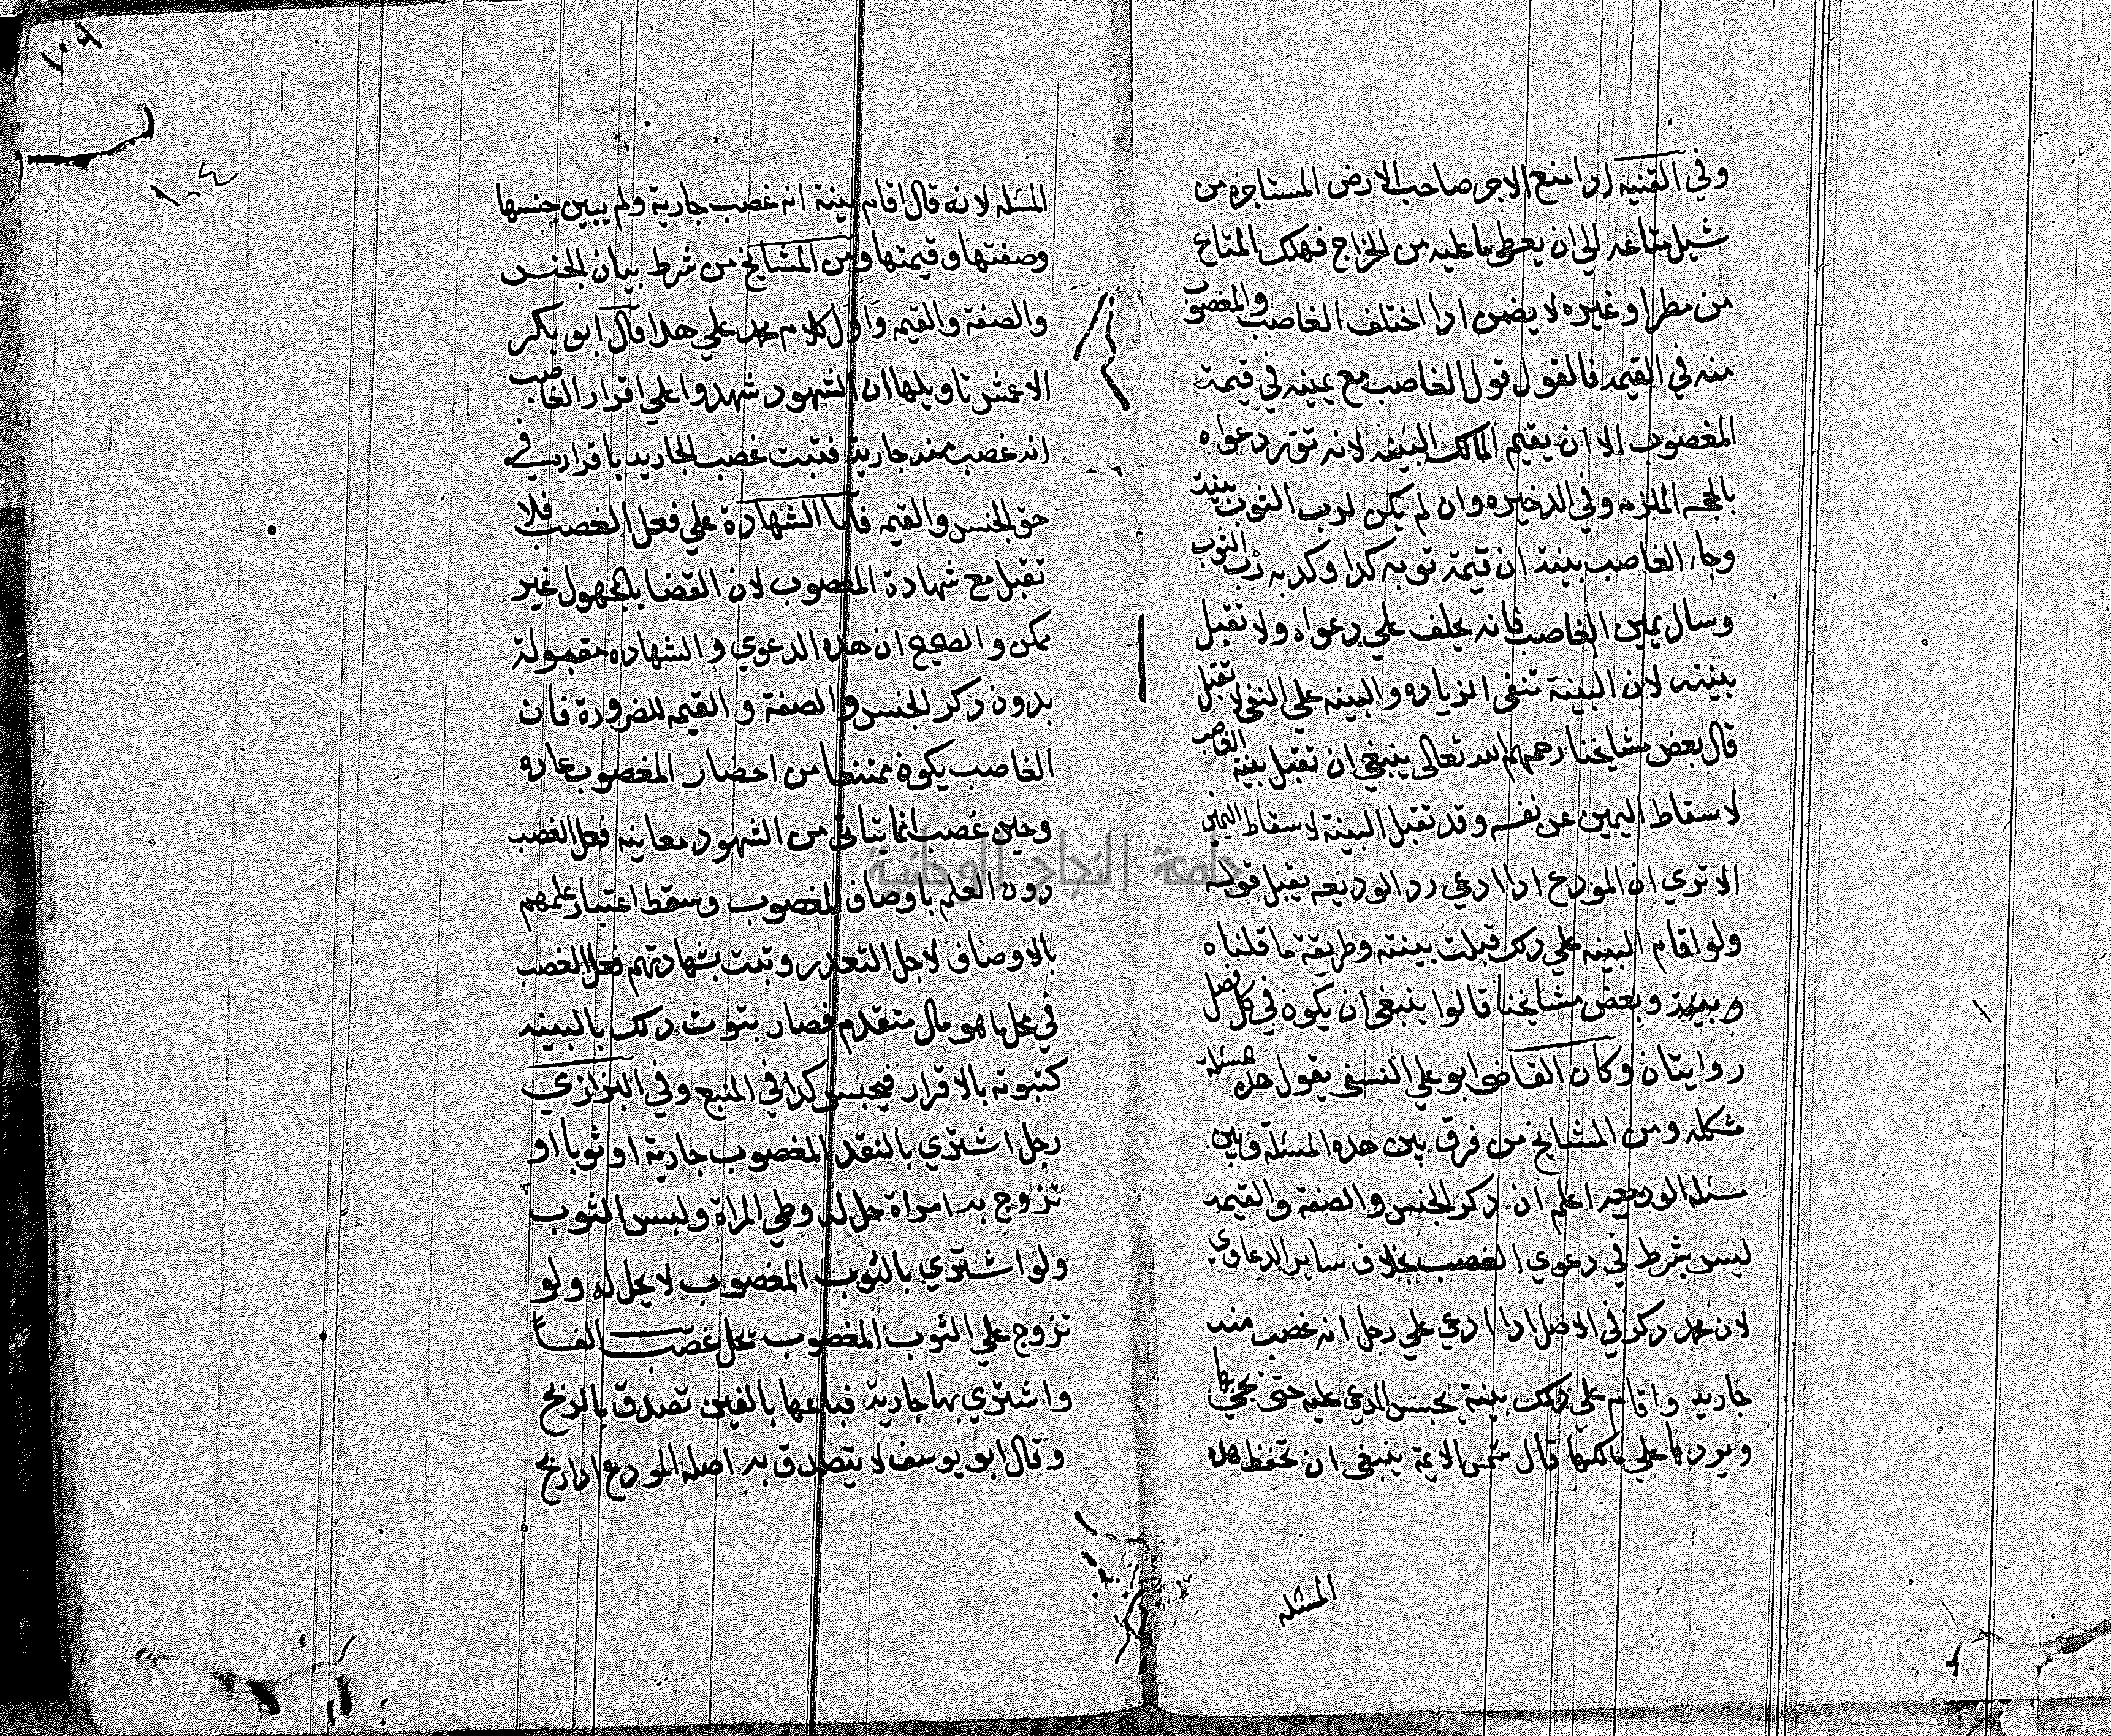 وفي القنيه ادا منع الاجر صاحب الارض المستاجره من
شيل متاعه الي ان يعطي ما عليه من الخراج فهلك المتاع
من مطر او غيره لا يضمن ادا اختلف الغاصب والمغصوب
منه في القيمه فالقول قول الغاصب مع يمينه في قيمة
المغصوب الا ان يقيم المالك البينه لانه تور دعواه
بالحجه الملزمه وفي الدخيره وان لم يكن لرب الثوب بينة
وجاء الغاصب بينة ان قيمة ثوبه كدا وكدبه رب الثوب
وسال يمين الغاصب فانه يحلف علي دعواه ولا تقبل
بينته لان البينة تنفي الزياده والبينه علي النفي لا تقبل
قال بعض مشايخنا رحمهم الله تعالى ينبغي ان تقبل بينة الغاصب
لاسقاط اليمين عن نفسه وقد تقبل البينة لاسقاط اليمين
الا تري ان المودع ادا ادعي رد الوديعه يقبل قوله
ولو اقام البينه علي دلك قبلت بينته وطريقة ما قلناه
وبعض مشايخنا قالوا ينبغي ان يكون في كل فصل
روايتان وكان القاضي ابو علي النسفي يقول هده مسئلة
مشكله ومن المشايخ من فرق بين هده المسئلة وبين
مسئلة الوديعه اعلم ان دكر الجنس والصفة والقيمه
ليس بشرط في دعوي الغصب بخلاف ساير الدعاوي
لان محمد دكر في الاصل ادا ادعي علي رجل انه غصب منه
جاريه واقام علي دلك بينة يحبس المدعي عليه حتى يجي بها
ويردها علي مالكها قال شمس الائمة ينبغي ان تحفظ هده
المسئله
١٠٩
١٠٤
المسئله لانه قال اقام بينة انه غصب جارية ولم يبين جنسها
وصفتها وقيمتها ومن المشايخ من شرط بيان الجنس
والصفة والقيمه واول كلام محمد علي هدا قال ابو بكر
الاعمش تاويلها ان الشهود شهدوا علي اقرار الغاصب
انه غصب منه جارية فتبت غصب الجاريه باقراره في
حق الجنس والقيمه فاما الشهادة علي فعل الغصب فلا
تقبل مع شهادة المغصوب لان القضا بالمجهول غير
ممكن والصحيح ان هده الدعوي والشهاده مقبولة
بدون دكر الجنس والصفة والقيمه للضرورة فان
الغاصب يكون ممتنعا من احضار المغصوب عاده
وحين غصب انما يتاتي من الشهود معاينه فعل الغصب
دون العلم باوصاف المغصوب وسقط اعتبار علمهم
بالاوصاف لاجل التعدر وتبت بشهادتهم فعل الغصب
في محل ما هو مال متقدم فصار بتوت دلك بالبينه
كتبوته بالاقرار فيحبس كدا في المنبع وفي البزازي
رجل اشتري بالنقد المغصوب جارية او ثوبا او
تزوج به امراة حل له وطي المراة ولبس الثوب
ولو اشتري بالثوب المغصوب لا يحل له ولو
تزوج علي الثوب المغصوب تحل غصب الفا
واشتري بها جارية فباعها بالفين تصدق بالربح
وقال ابو يوسف لا يتصدق به اصله المودع ادا ربح
جامعة النجاح الوطنية